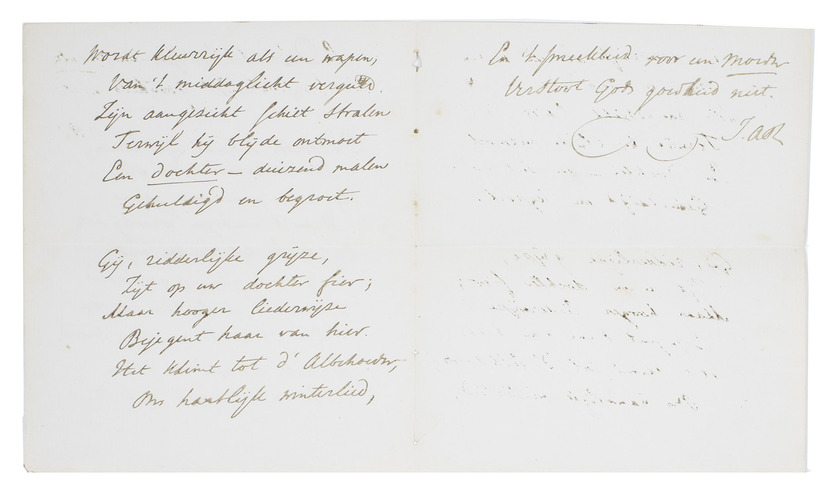 Wordt kleurrijk als un wapen,
Van 't middaglicht verguld.
Zijn aangezicht schiet stralen
Terwijl hij blijde ontmoet
Een dochter – duizend malen
Gehuldigd en begroet.
Gij, ridderlijke grijze,
Zijt op uw dochter fier;
Maar hooger liederwijze
Bejegent haar van hier.
Het klimt tot d' Albehoeder,
Ons hartlijk winterlied,
En 't smeeklied voor un Moeder
Verstoot Gods goedheid niet.